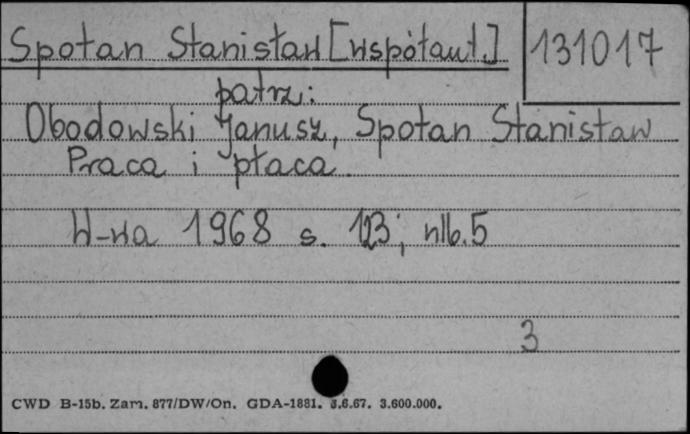 Spotan Stanisław [współaut.] 131017
patrz:
Obodowski Janusz, Spotan Stanisław
Praca i płaca.
W-wa 1968 s. 123; nlb. 5
3
CWD B-15b. Zam. 877/DW/On. GDA-1881. 3.6.67. 3.600.000.